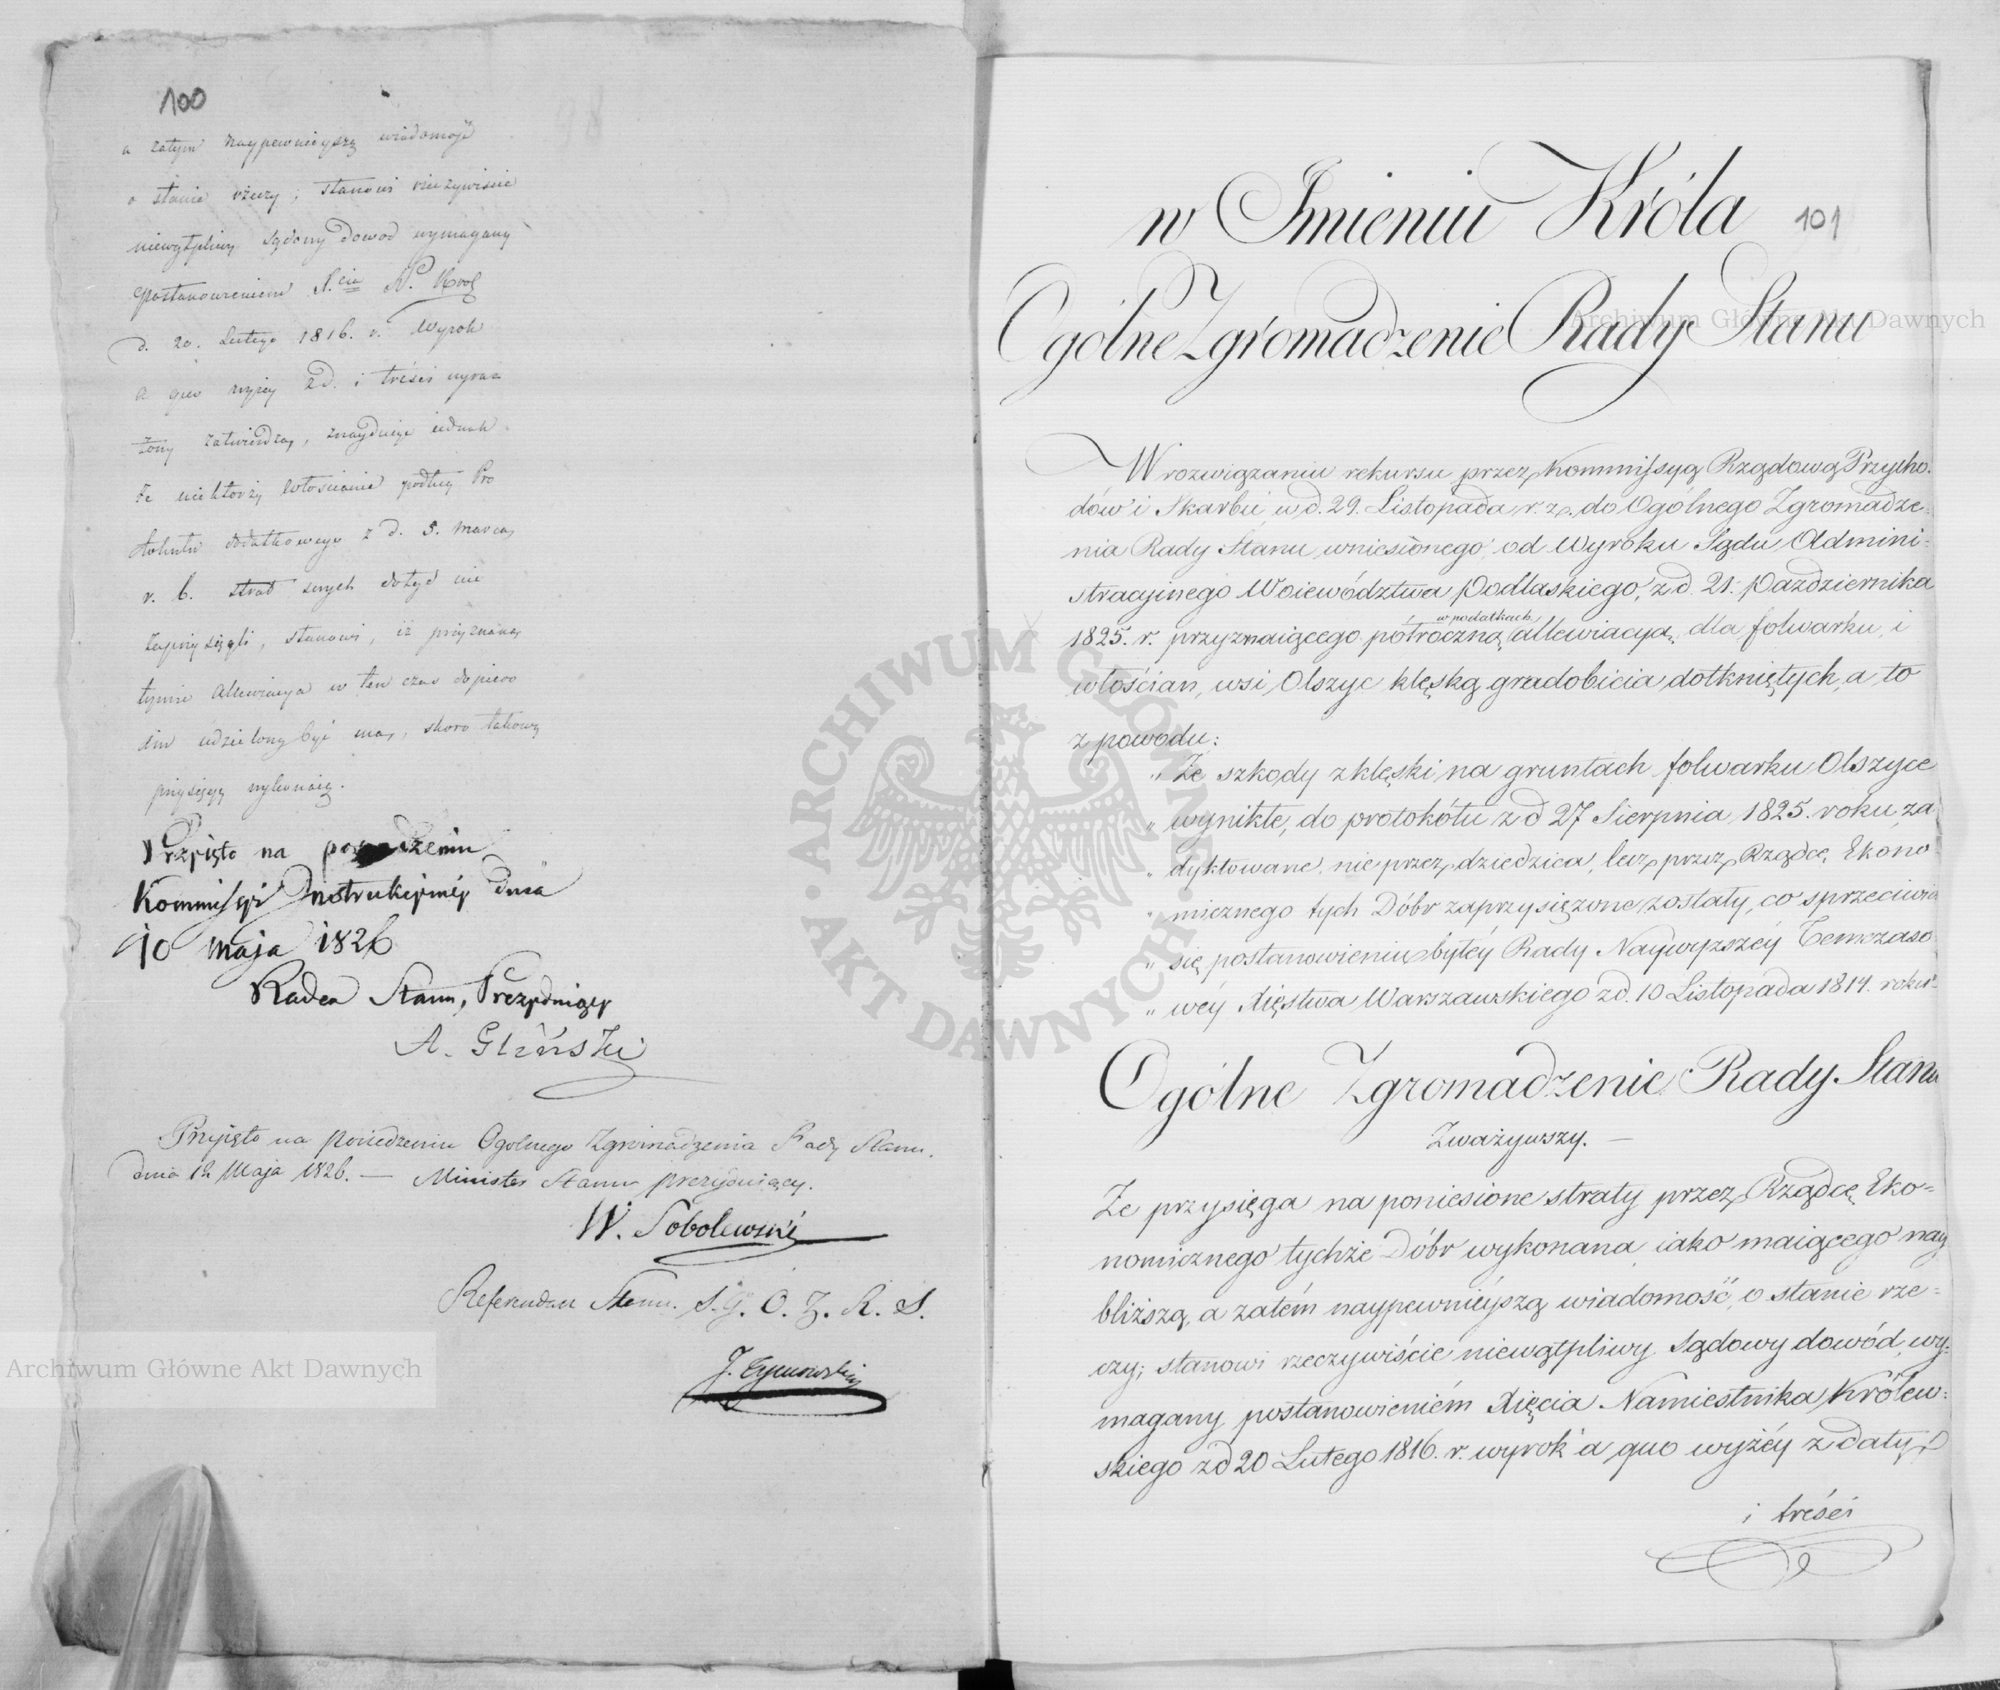 100
a zatym naypewnieyszą wiadomość
o stanie rzeczy; stanowi rzeczywiście
niewątpliwy sądowy dowod wymagany
postanowieniem X.cia N. Kroł
d. 20. Lutego 1816. r. Wyrok
a quo wyżey z d. i treści wyra
żony zatwierdza, znayduiąc iednak
że niektorzy włościanie podług Pro
tokułu dodatkowego z d. 5. Marca
r. b. strat swych dotąd nie
zaprzysięgli, stanowi, iż przyznana
tymże allewiacya w ten czas dopiero
im udzieloną być ma, skoro takową
przysięgę wykonaią.
Przyięto na posiedzeniu
Kommissyi Instrukcyiney dnia
10 Maja 1826
Radca Stanu, Prezyduiący
A. Gliński
Przyięto na posiedzeniu Ogolnego Zgromadzenia Rady Stanu.
dnia 12 Maja 1826. — Minister Stanu prezyduiący.
W. Sobolewski
Referendarz Stanu. S. G. O. Z. R. S.
J. Tymowski
101
w Imieniu Króla
Ogólne Zgromadzenie Rady Stanu
W rozwiązaniu rekursu przez Kommissyą Rządową Przycho-
dów i Skarbu w d. 29. Listopada r. z. do Ogólnego Zgromadze-
nia Rady Stanu wniesionego od Wyroku Sądu Admini-
stracyinego Woiewództwa Podlaskiego, z d. 21. Października
w podatkach
1825. r. przyznaiącego półroczną allewiacyą, dla folwarku, i
włościan, wsi Olszyc klęską gradobicia dotkniętych, a to
z powodu:
„ Że szkody z klęski na gruntach folwarku Olszyce
„ wynikłe, do protokółu z d 27 Sierpnia 1825. roku, za
„ dyktowane, nie przez dziedzica, lecz przez Rządcę Ekono
„ micznego tych Dóbr zaprzysiężone zostały, co sprzeciwia
„ się postanowieniu byłéy Rady Naywyższéy Tymczaso
„ wéy Xięstwa Warszawskiego z d. 10 Listopada 1814. roku.
Ogólne Zgromadzenie Rady Stanu
Zważywszy. —
Że przysięga na poniesione straty przez Rządcę Eko-
nomicznego tychże Dóbr wykonana, iako maiącego nay
bliższą, a zatém naypewniéyszą wiadomość, o stanie rze-
czy; stanowi rzeczywiście niewątpliwy Sądowy dowód, wy-
magany postanowieniém Xięcia Namiestnika Królew-
skiego z d 20 Lutego 1816. r. wyrok a quo wyżéy z daty
i treści
Archiwum Główne Akt Dawnych
Archiwum Główne Akt Dawnych
ARCHIWUM GŁÓWNE · AKT DAWNYCH ·